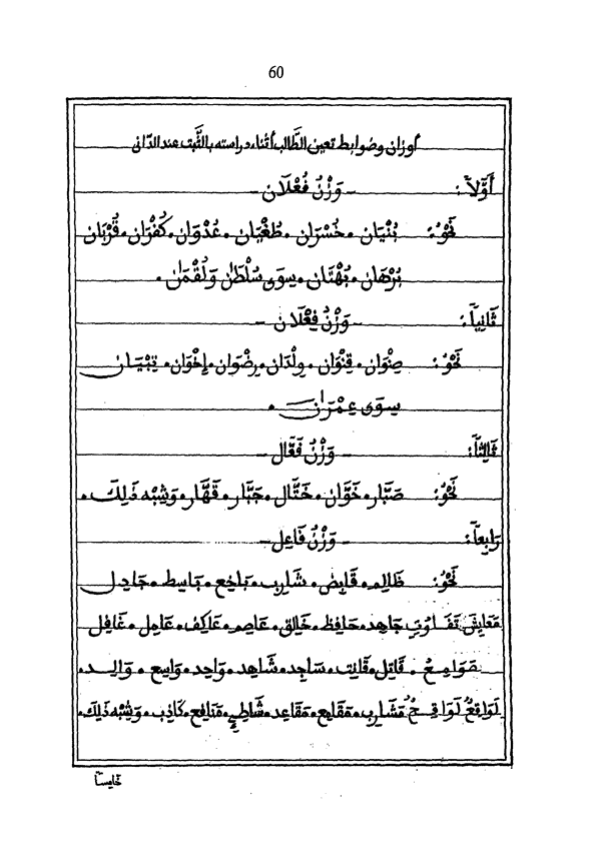 60
أوزان وضوابط تعين الطَّالب أثناء دراسته بالثَّبت عند الدَّانى
أَوَّلاً: - وَزْنُ فُعْلَان -
نَحْوُ: بُنْيَان . خُسْرَان . طُغْيَان . عُدْوَان . كُفْرَان . قُرْبَان
بُرْهَان . بُهْتَان . سِوَى سُلْطَٰن وَلُقْمَٰن .
ثَانِياً: - وَزْنُ فِعْلَان -
نَحْوُ: صِنْوَان . قِنْوَان . وِلْدَان . رِضْوَان . إِخْوَان . تِبْيَـان
سِوَى عِمْرَٰن .
ثَالِثاً: - وَزْنُ فَعَّال -
نَحْوُ: صَبَّار . خَوَّان . خَتَّال . جَبَّار . قَهَّار . وَشِبْه ذَلِكَ .
رَابِعاً: - وَزْنُ فَاعِل -
نَحْوُ: ظَالِم . قَابِض . شَارِب . بَاخِع . بَاسِط . جَادِل
مَعَايِشَ تَفَـاوُتٍ جَاهِد . حَافِظ . خَالِق . عَاصِم . عَاكِف . عَامِل . غَافِل
صَوَامِعُ . قَاتِل . قَانِت . سَاجِد . شَاهِد . وَاحِد . وَاسِع . وَالِـد .
لَوَاقِعٌ لَوَاقِـحُ مَشَارِب . مَقَامِع . مَقَاعِد . شَاطِئ . مَنَافِع . كَاذِب . وَشِبْه ذَلِكَ .
خامساً